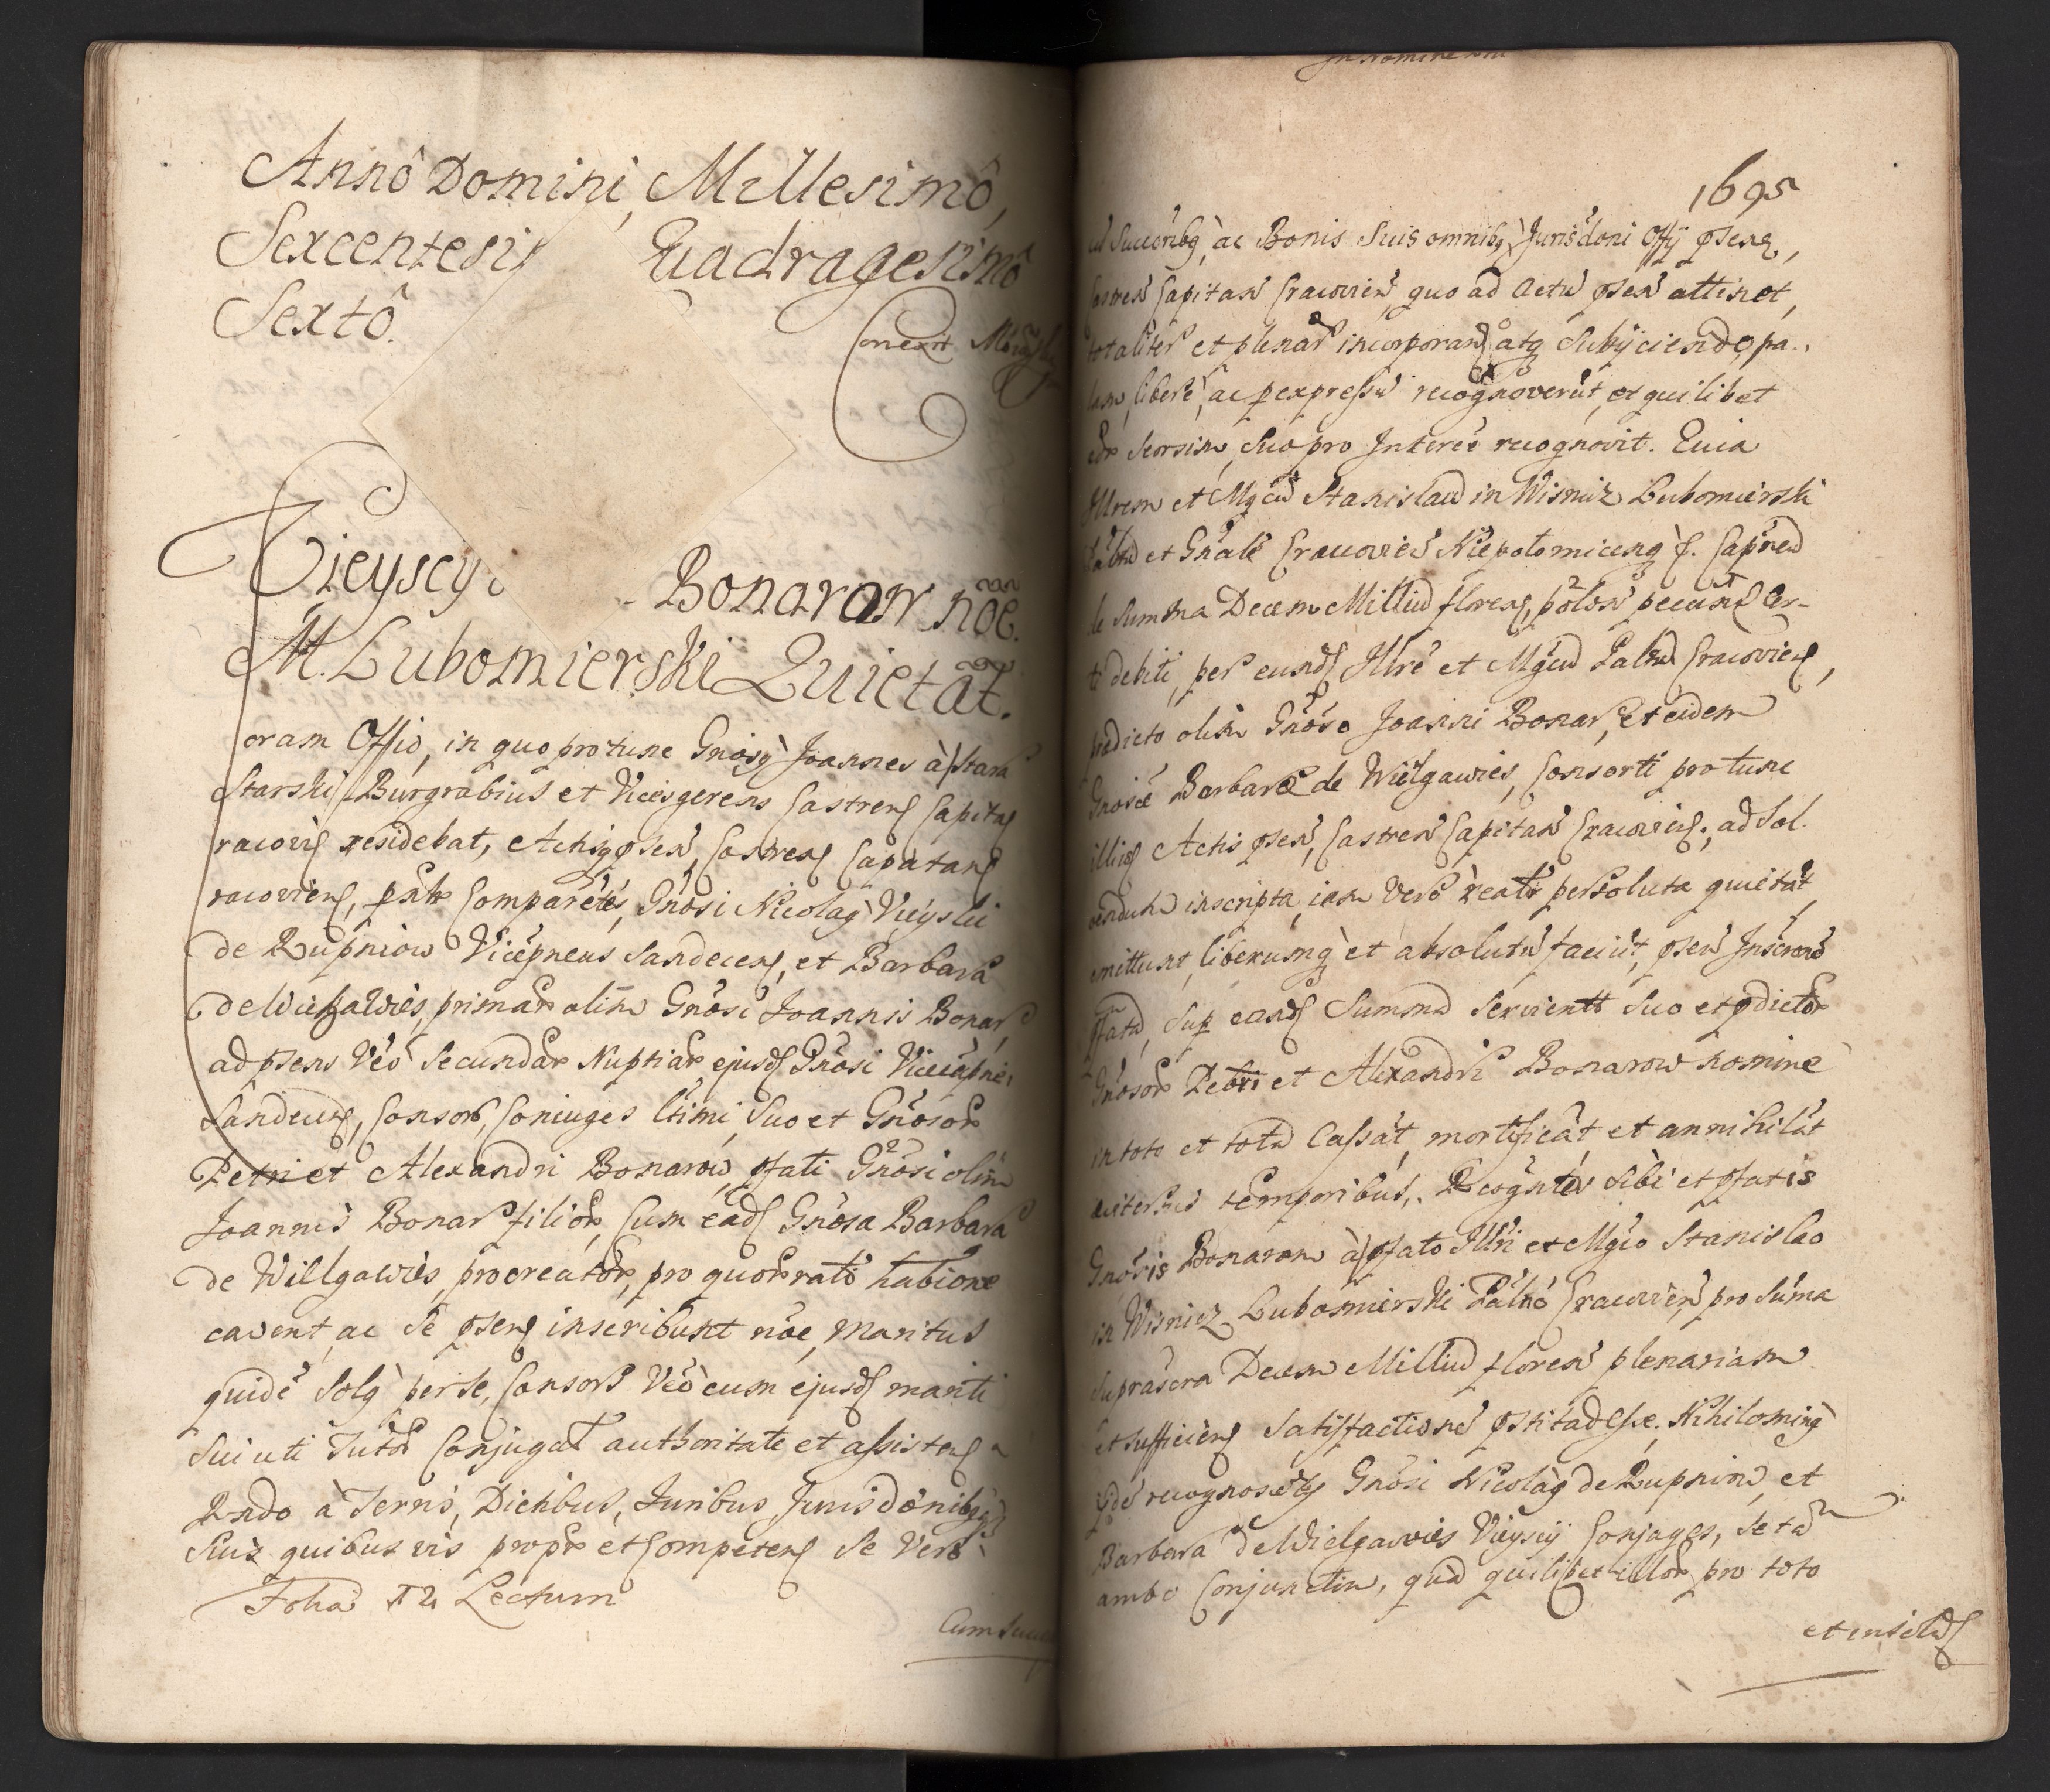 Annô Domini, Millesimô,
Sexcentesi Quadragesimô
Sextô.
Vieyscy Bonarow nõe.
M. Lubomierski Quietat.
oram Offio, in quo protunc Gnosq Joannes à
Starski Burgrabius et Vicesgerens Castren Capitan
racovien residebat, Actisq psen Castren Capitan
racovien, psnlr Comparetes, Gnosi Nicolaq Vieyski
de Rupniow Vicepneus Sandecen, et Barbara
de Wielgawies, primar olim Gnosi Joannis Bonar
ad psens Veo Secundar Nuptiar ejusd Gnosi Vicecapnei
Sandecen, Consors, Coniuges ltimi, Suo et Gnosor
Petri et Alexandri Bonarow, pfati Gnosi olim
Joannis Bonar filior, Cum ead Gnosa Barbara
de Willgawies, procreator, pro quor rati habione
cavent, ac Se psen inscribunt nõe, Maritus
quide Solq per se, Consors Veo cum ejusd mariti
Sui uti Tutor Conjugal authoritate et assisten
Rndo à Terris, Dictibus, Juribus Jurisdonibq
Suis quibus vis propr et Competen Se Vero
Folia Lectum
Cum Succ
1695
Succoribq, ac Bonis Suis omnibq Jurisdoni Offy psen,
Castren Capitan Cracovien, quo ad Actu psen attinet,
totaliter et plenar incorporan atq Subijciendo, pa-
lam, libere, ac p expressu recognoverut, et quilibet
eor Seorsim, Suo pro Interee recognovit. Quia
Illrem et Mgcu Stanislau in Wisnicz Lubomierski
Paltnu et Gnale Cracovien Niepolomicenq &. Capneu
de Summa Decem Milliu floren, polon pecun Cer-
ti debiti, per eund Illre et Mgcu Paltnu Cracovien,
predicto olim Gnoso Joanni Bonar, et eidem
Gnosae Barbarae de Wielgawies, Consorti protunc
illiq Actis psen, Castren Capitan Cracovien, ad Sol-
vendum inscripta, iam Vero realr persoluta quietat,
mittunt, liberumq et absolutu faciut, psen Inscrone
pfata, Sup eand Summa Servient Suo et pdictor
Gnosor Petri et Alexandri Bonarow nomine
in toto et tota Cassat, mortificat et annihilat
aviternis temporibus. Recogntes Sibi et pfatis
Gnosis Bonarom à pfato Illri et Mgco Stanislao
in Wisnicz Lubomierski Paltno Cracovien, pro Suma
Suprascra Decem Milliu floren plenariam
et sufficien Satisfactione pstitad Esse. Nihilominq
yde recognoscetes Gnosi Nicolaq de Rupniow et
Barbara de Wielgawies Vieyscij Conjuges, Se ta
ambo Conjunctim, qua quilibet illor pro toto
et insold